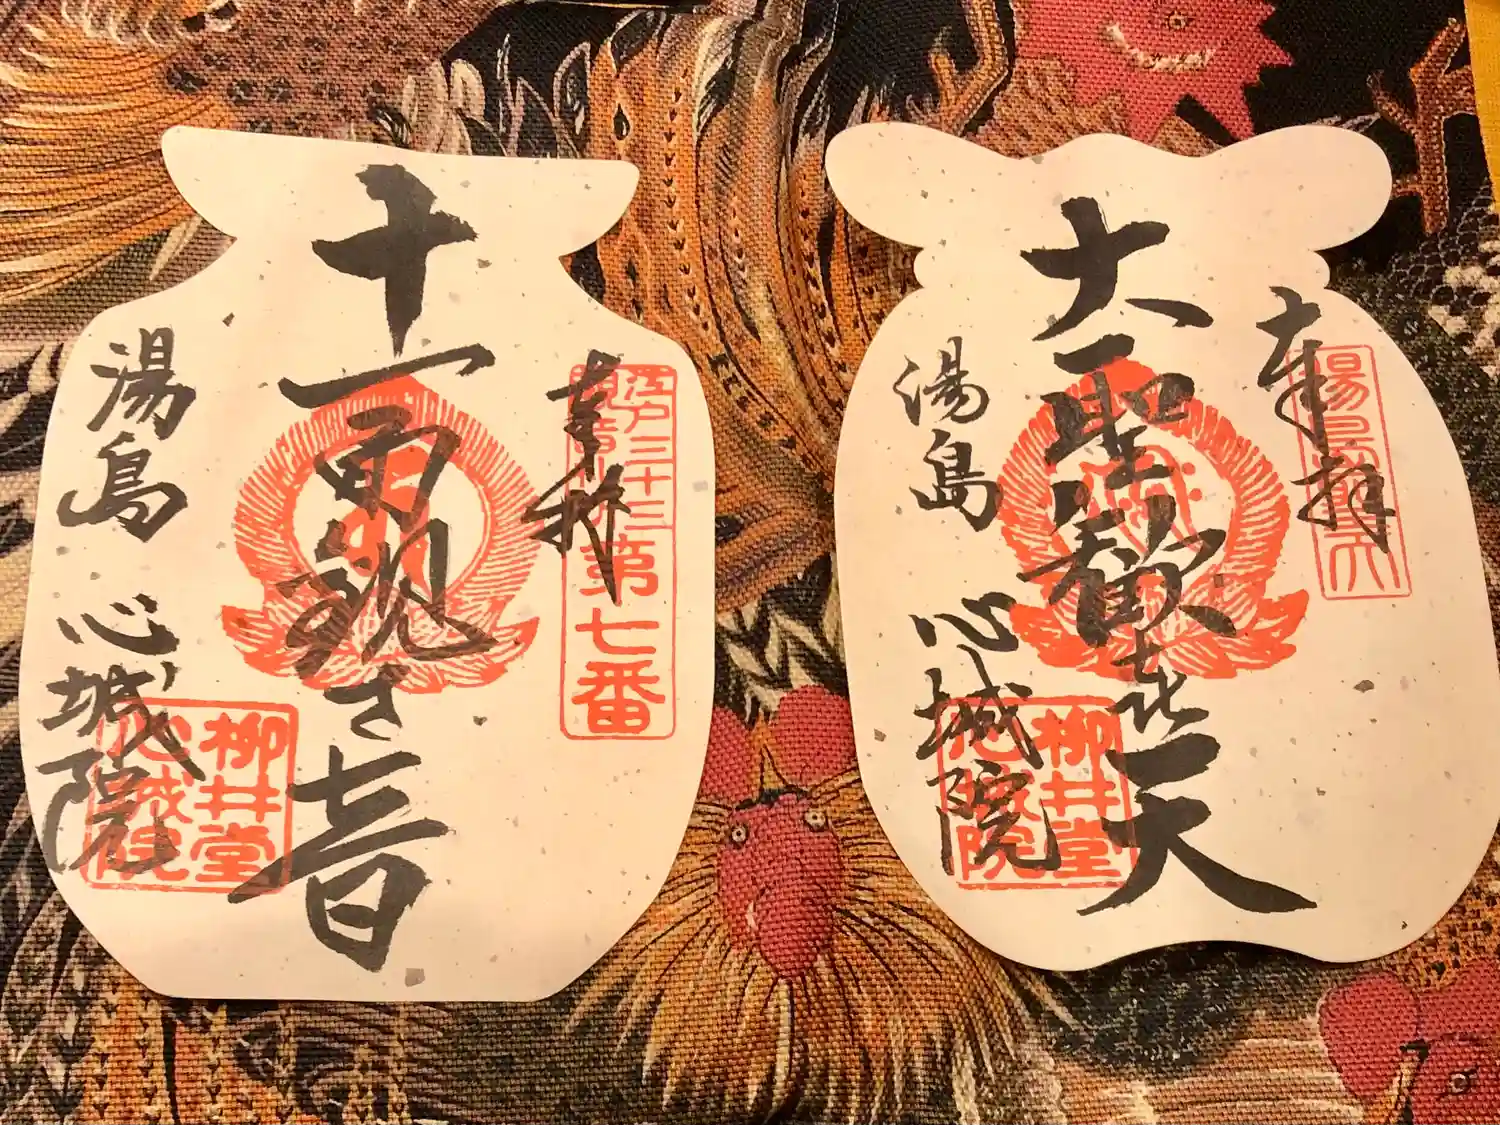 奉拝
江戸三十三
観音札所
第七番
十一面観世音
湯島 心城院
柳井堂
心城院
奉拝
大聖歓喜天
湯島 心城院
柳井堂
心城院